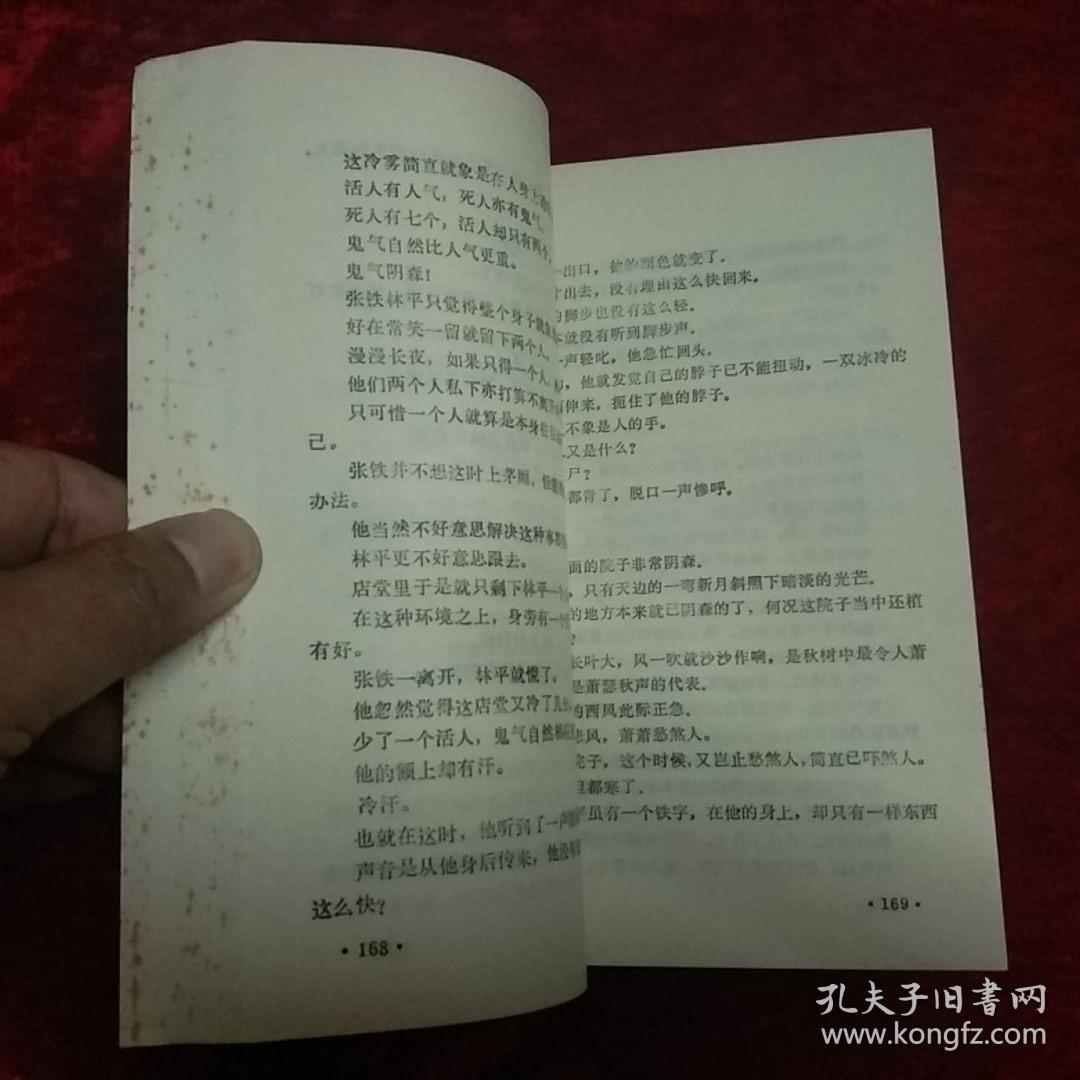 这冷雾简直就象是在人身上
活人有人气，死人亦有鬼气。
死人有七个，活人却只有两个。
鬼气自然比人气更重。
鬼气阴森！
张铁林平只觉得整个身子
好在常笑一留就留下两个人，
漫漫长夜，如果只得一个人，
他们两个人私下亦打算不离开
只可惜一个人就算是本身
己。
张铁并不想这时上茅厕，但
办法。
他当然不好意思解决这种事
林平更不好意思跟去。
店堂里于是就只剩下林平一个
在这种环境之上，身旁有一个
有好。
张铁一离开，林平就慌了。
他忽然觉得这店堂又冷了几分
少了一个活人，鬼气自然
他的额上却有汗。
冷汗。
也就在这时，他听到了一声
声音是从他身后传来，他没
这么快？
·168·
一出口，他的面色就变了。
出去，没有理由这么快回来。
的脚步也没有这么轻。
就没有听到脚步声。
一声轻叱，他急忙回头。
，他就发觉自己的脖子已不能扭动，一双冰冷的
伸来，扼住了他的脖子。
不象是人的手。
又是什么？
尸？
都青了，脱口一声惨呼。
面的院子非常阴森。
，只有天边的一弯新月斜照下暗淡的光芒。
的地方本来就已阴森的了，何况这院子当中还植
？
长叶大，风一吹就沙沙作响，是秋树中最令人萧
是萧瑟秋声的代表。
的西风此际正急。
悲风，萧萧愁煞人。
院子，这个时候，又岂止愁煞人，简直已吓煞人。
里都寒了.
字虽有一个铁字，在他的身上，却只有一样东西
·169·
孔夫子旧書网
www.kongfz.com